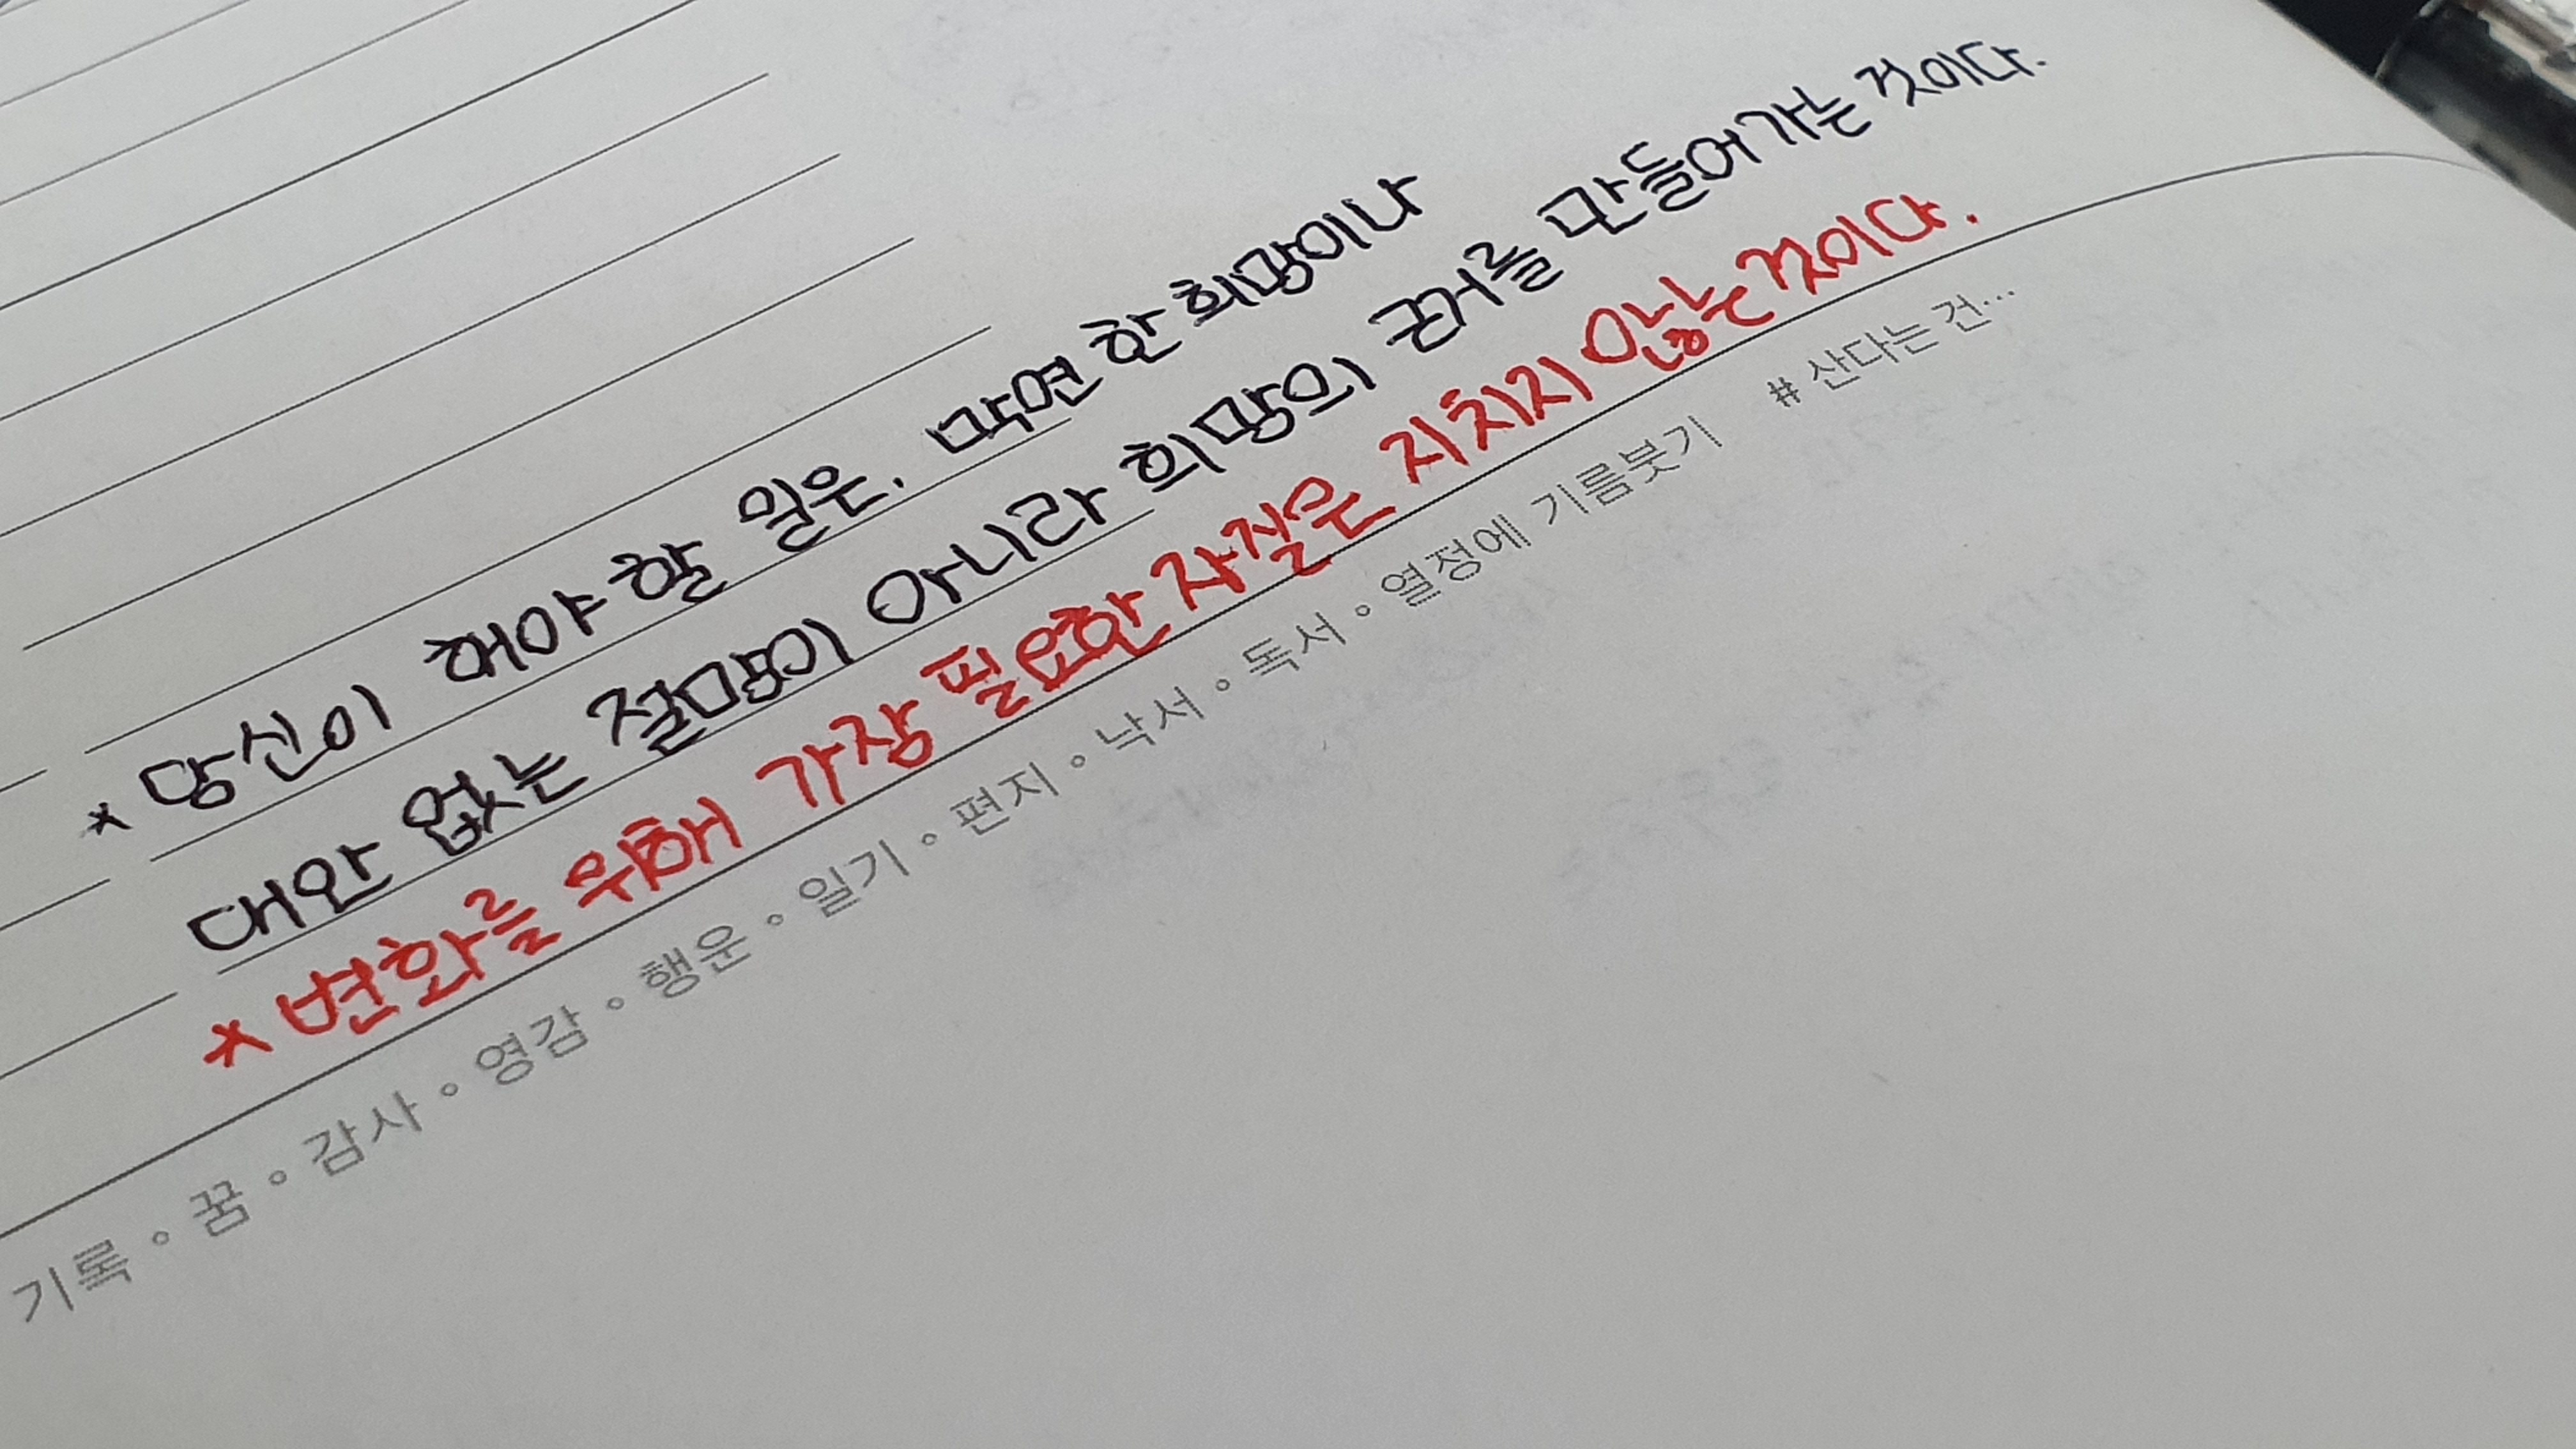 * 당신이 해야 할 일은, 막연한 희망이나
대안 없는 절망이 아니라 희망의 근거를 만들어가는 것이다.
* 변화를 위해 가장 필요한 자질은 지치지 않는 것이다.
기록 ◦ 꿈 ◦ 감사 ◦ 영감 ◦ 행운 ◦ 일기 ◦ 편지 ◦ 낙서 ◦ 독서 ◦ 열정에 기름붓기 # 산다는 건...